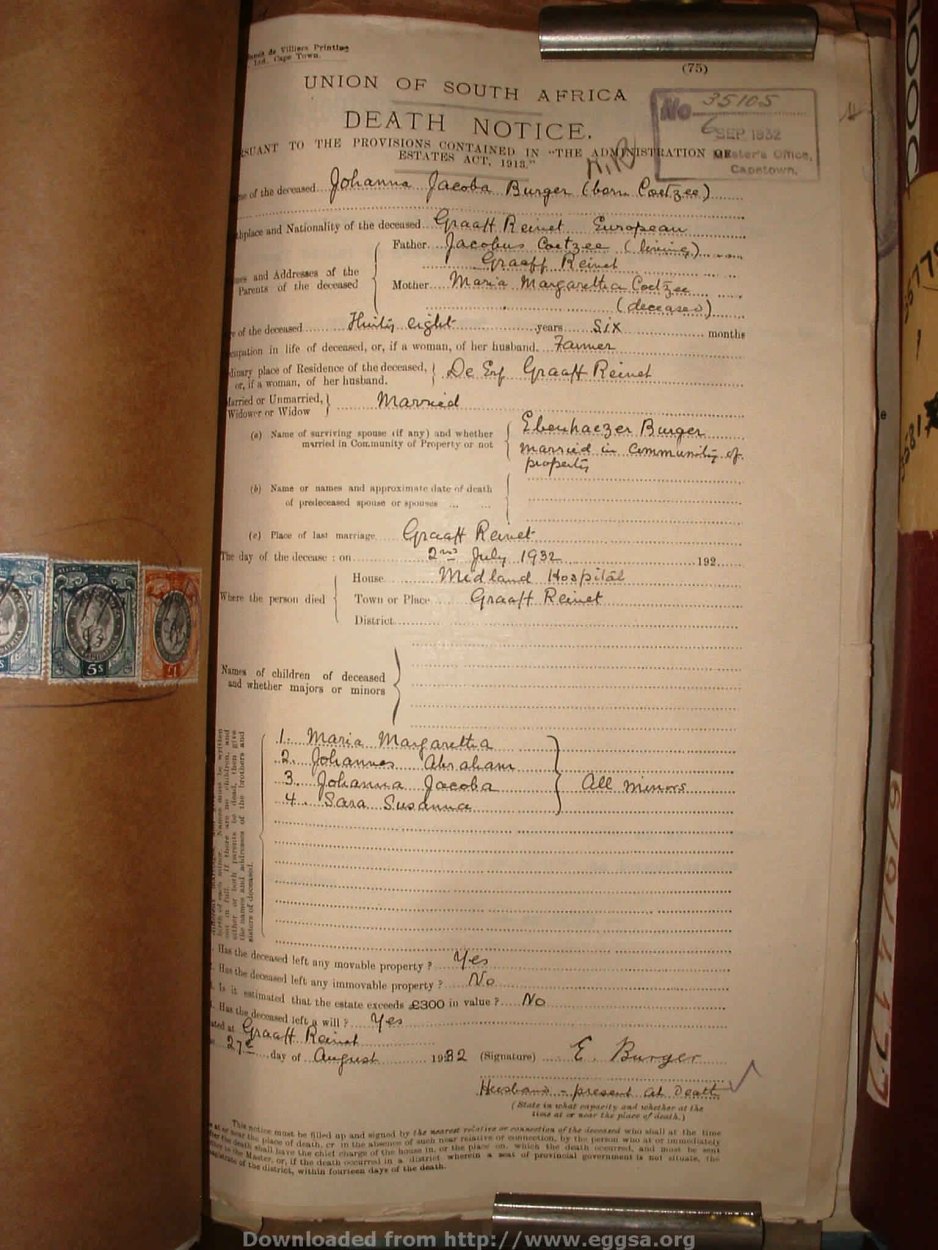 de Villiers Printing
Ltd. Cape Town.
(75)
UNION OF SOUTH AFRICA
No 35105
6 SEP 1932
Master's Office,
Capetown.
DEATH NOTICE.
PURSUANT TO THE PROVISIONS CONTAINED IN "THE ADMINISTRATION OF
ESTATES ACT, 1913."
of the deceased Johanna Jacoba Burger (born Coetzee)
Birthplace and Nationality of the deceased Graaff Reinet European
Names and Addresses of the Parents of the deceased
Father Jacobus Coetzee (living)
Graaff Reinet
Mother Maria Margaretha Coetzee
(deceased)
of the deceased Thirty eight years Six months
Occupation in life of deceased, or, if a woman, of her husband. Farmer
Ordinary place of Residence of the deceased, or, if a woman, of her husband. De Erf Graaff Reinet
Married or Unmarried, Widower or Widow Married
(a) Name of surviving spouse (if any) and whether married in Community of Property or not
Ebenhaezer Burger
Married in Community of
property
(b) Name or names and approximate date of death
of predeceased spouse or spouses
(c) Place of last marriage Graaff Reinet
The day of the decease : on 2nd July 1932 192
Where the person died
House Midland Hospital
Town or Place Graaff Reinet
District
Names of children of deceased
and whether majors or minors
1. Maria Margaretha
2. Johannes Abraham
3. Johanna Jacoba
4. Sara Susanna
All minors
Has the deceased left any movable property ? Yes
Has the deceased left any immovable property ? No
Is it estimated that the estate exceeds £300 in value ? No
Has the deceased left a will ? Yes
Dated at Graaff Reinet
27e day of August 1932 (Signature) E. Burger
Husband - present at Death
(State in what capacity and whether at the
time at or near the place of death.)
This notice must be filled up and signed by the nearest relative or connection of the deceased who shall at the time
at or near the place of death, or in the absence of such near relative or connection, by the person who at or immediately
after the death shall have the chief charge of the house in, or the place on, which the death occurred, and must be sent
to the Master, or, if the death occurred in a district wherein a seat of provincial government is not situate, the
Magistrate of the district, within fourteen days of the death.
5s
£1
Downloaded from http://www.eggsa.org